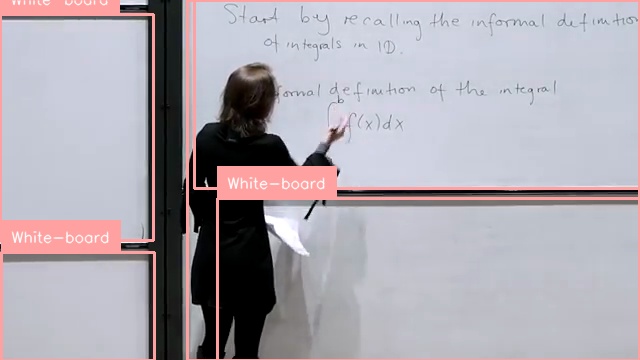 White-board
Start by recalling the informal definition
of integrals in 1D.
formal definition of the integral
∫ b f(x)dx
White-board
White-board